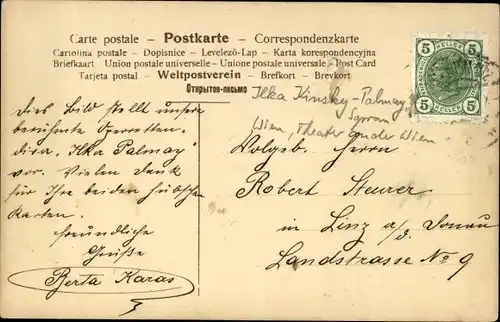 Carte postale - Postkarte - Correspondenzkarte
Cartolina postale - Dopisnice - Levelező-Lap - Karta korespondencyjna
Briefkaart - Union postale universelle - Unione postale universale - Post Card
Tarjeta postal - Weltpostverein - Brefkort - Brevkort
Открытое-письмо
5 5
HELLER
5 5
Ilka Kinsky-Palmay
Sopran
Wien, Theater an der Wien
Dies Bild stellt unsere
berühmte Operetten-
diva „Ilka Palmay“
vor. Vielen Dank
für Ihre beiden hübschen
Karten.
Freundliche
Grüße
Berta Karas
Wolgeb. Herrn
Robert Steurer
in Linz a/d. Donau
Landstrasse No 9